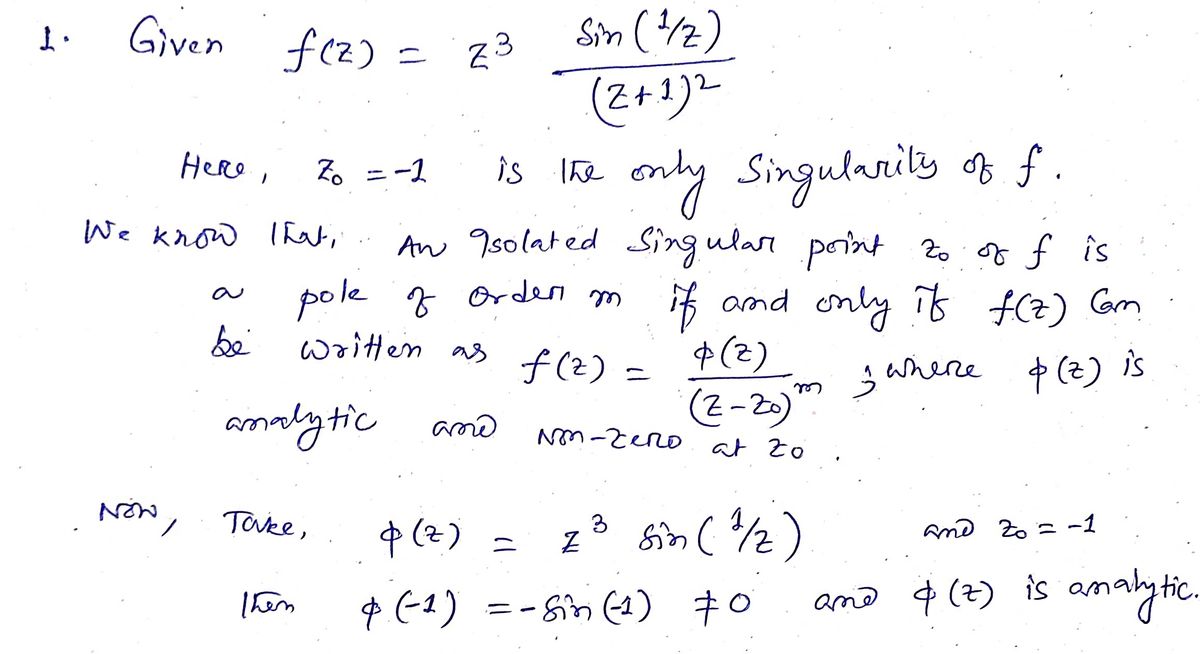 1. Given f(z) = z³ sin(1/z) / (z+1)²
Here, z₀ = -1 is the only singularity of f.
We know that, An Isolated singular point z₀ of f is
a pole of order m if and only if f(z) can
be written as f(z) = φ(z) / (z-z₀)ᵐ ; where φ(z) is
analytic and non-zero at z₀.
Now, Take, φ(z) = z³ sin(1/z) and z₀ = -1
then φ(-1) = -sin(-1) ≠ 0 and φ(z) is analytic.